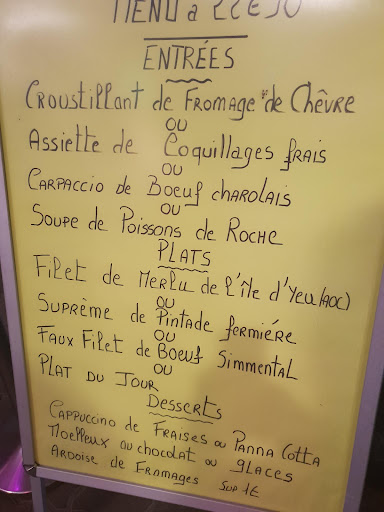 MENU à 22€50
ENTRÉES
CROUSTILLANT de FROMAGE de CHÊVRE
OU
ASSIETTE de COQUILLAGES FRAIS
OU
CARPACCIO de BOEUF CHAROLAIS
OU
SOUPE de POISSONS de ROCHE
PLATS
FILET de MERLU de L'ÎLE d'YEU (AOC)
OU
SUPRÈME de PINTADE FERMIÉRE
OU
FAUX FILET de BOEUF SIMMENTAL
OU
PLAT DU JOUR
DESSERTS
CAPPUCCINO de FRAISES ou PANNA COTTA
MOELLEUX au CHOCOLAT ou GLACES
ARDOISE de FROMAGES SUP 1€